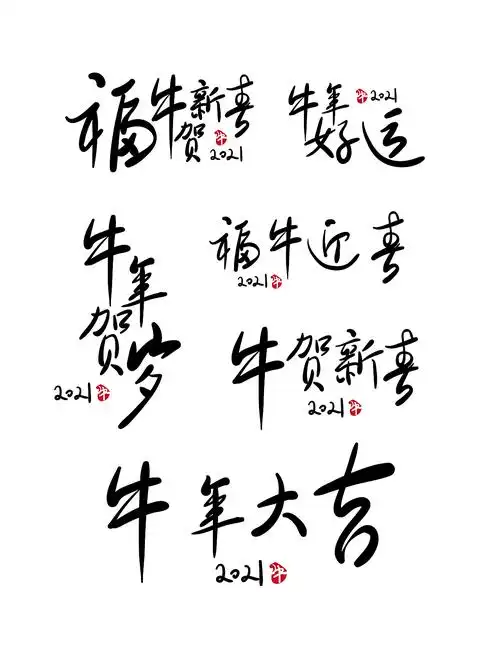 福牛贺新春
牛 2021
牛年好运
牛 2021
福牛迎春
2021 牛
牛年贺岁
2021 牛
牛贺新春
2021 牛
牛年大吉
2021 牛